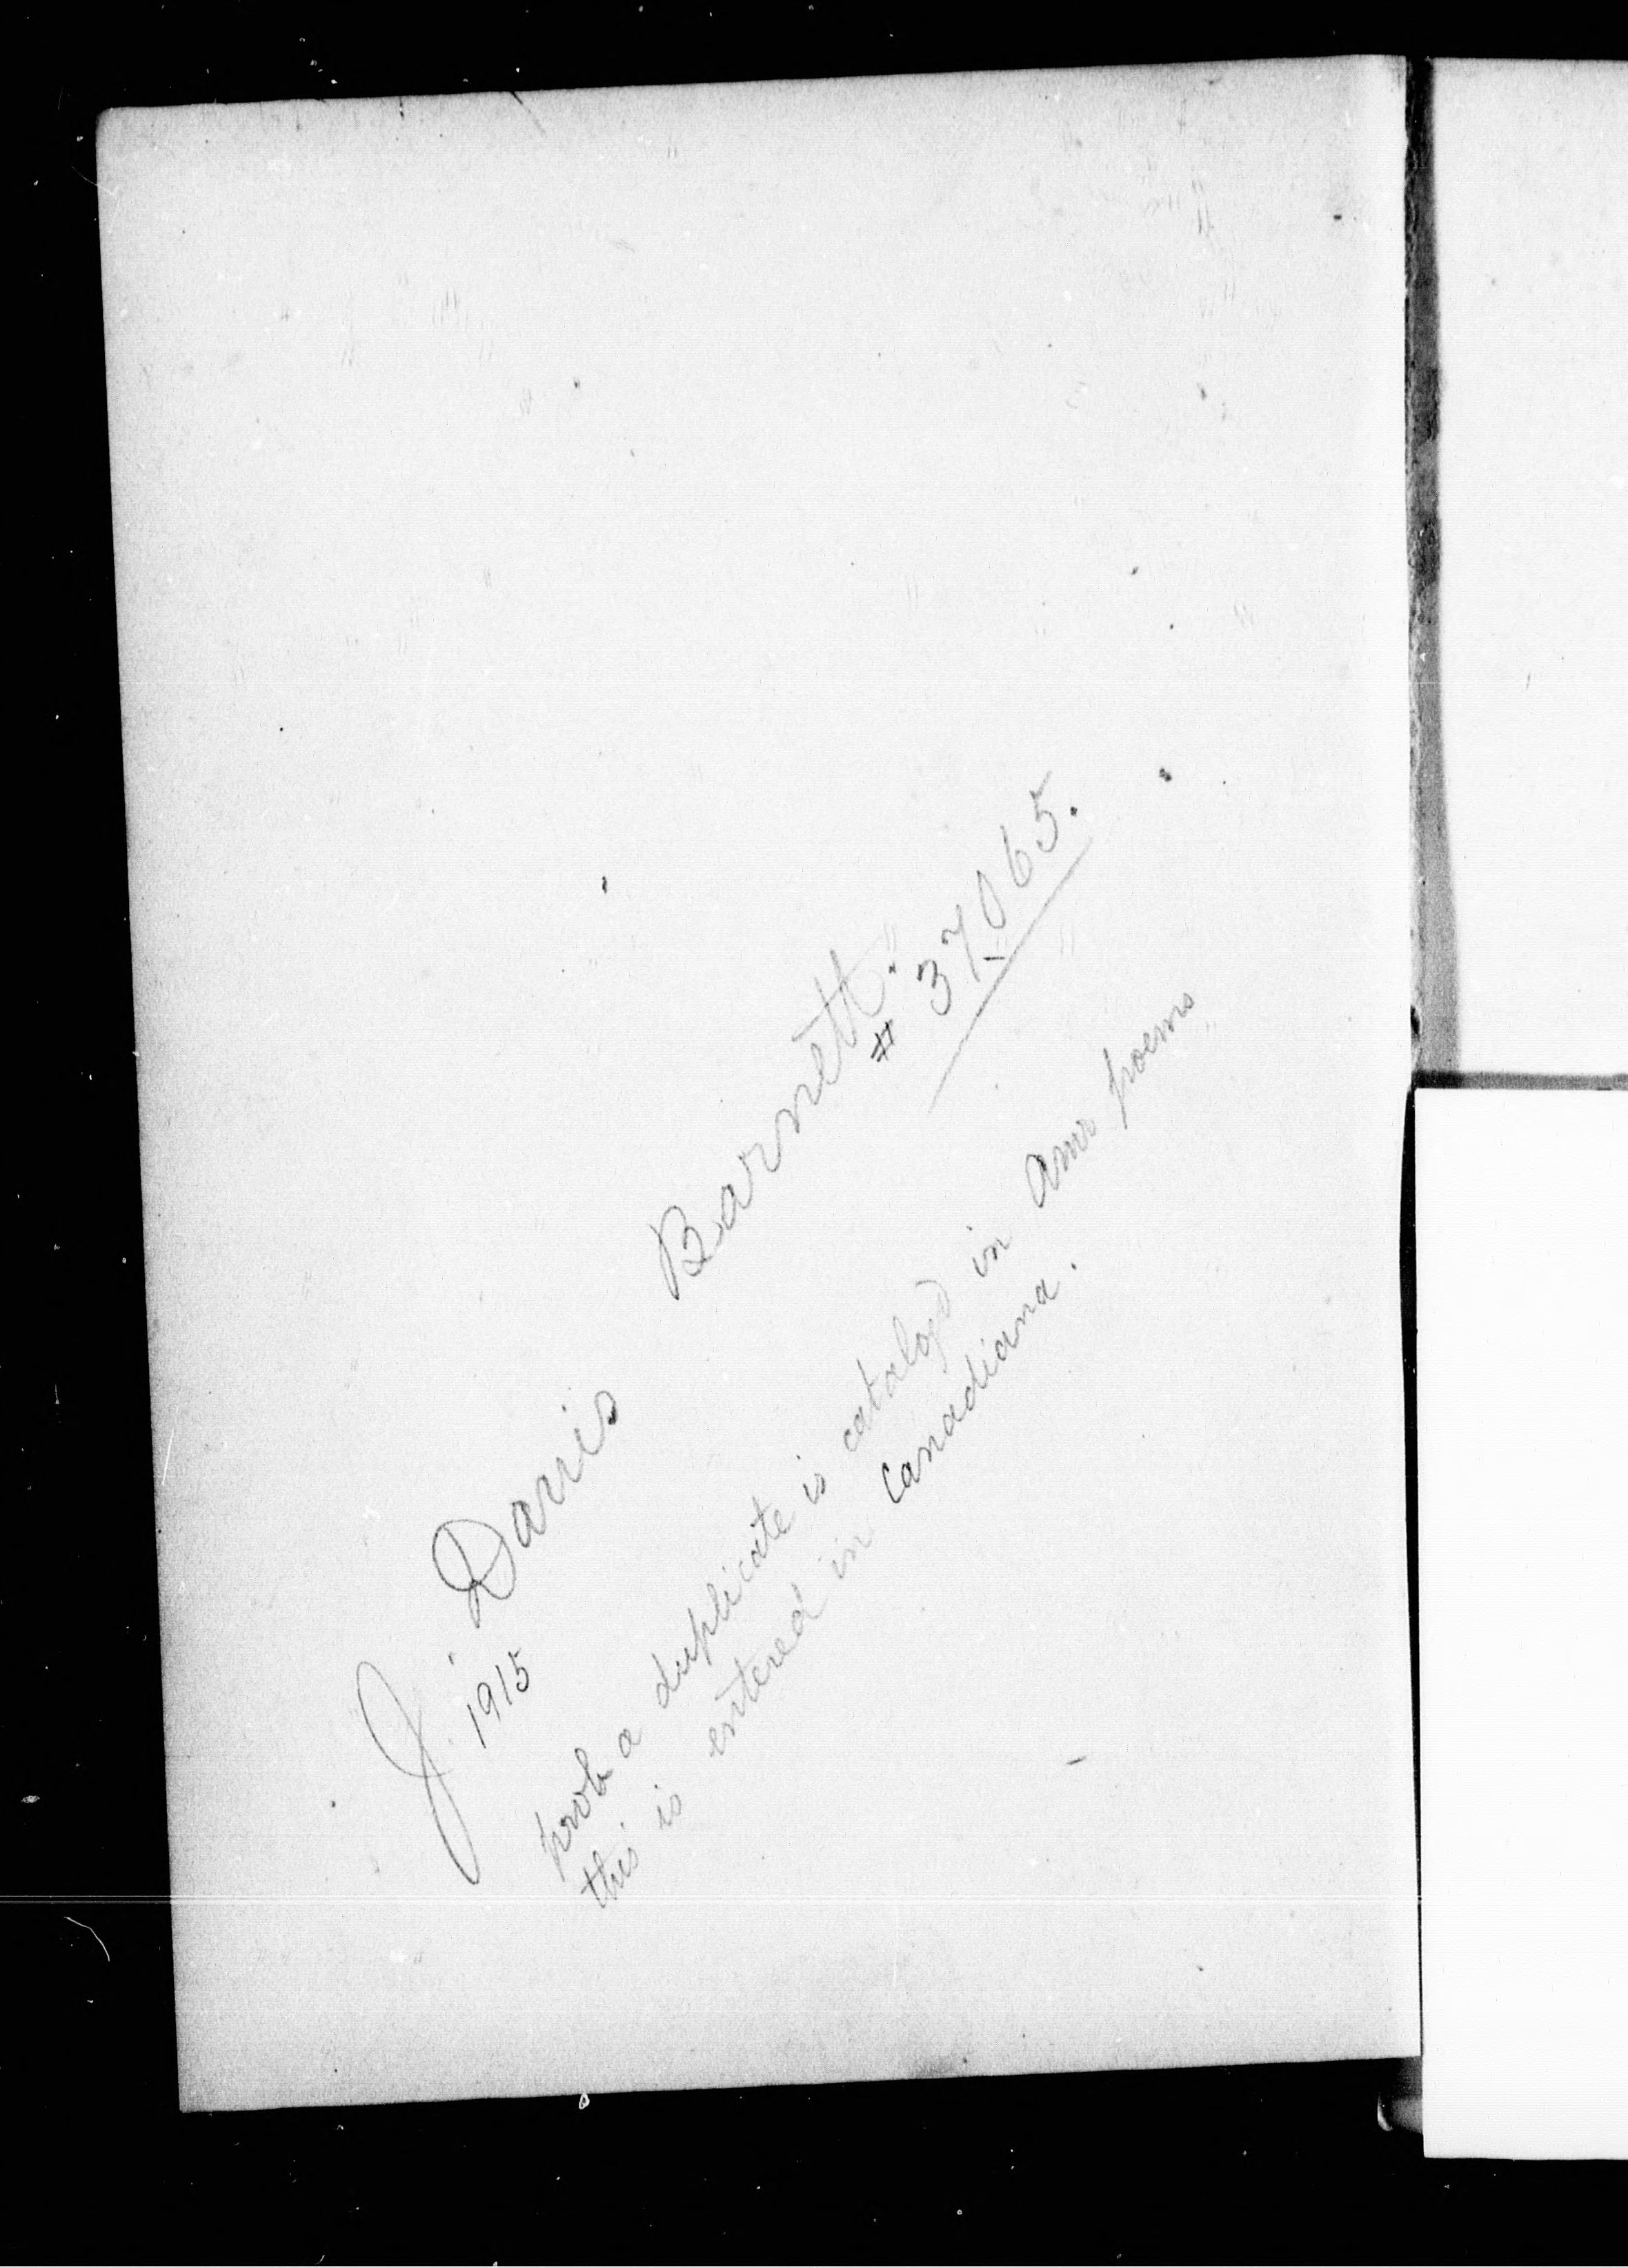 J. Davis Barnett.
1915 # 37065.
prob a duplicate is catalog'd in Amr poems
this is entered in Canadiana.